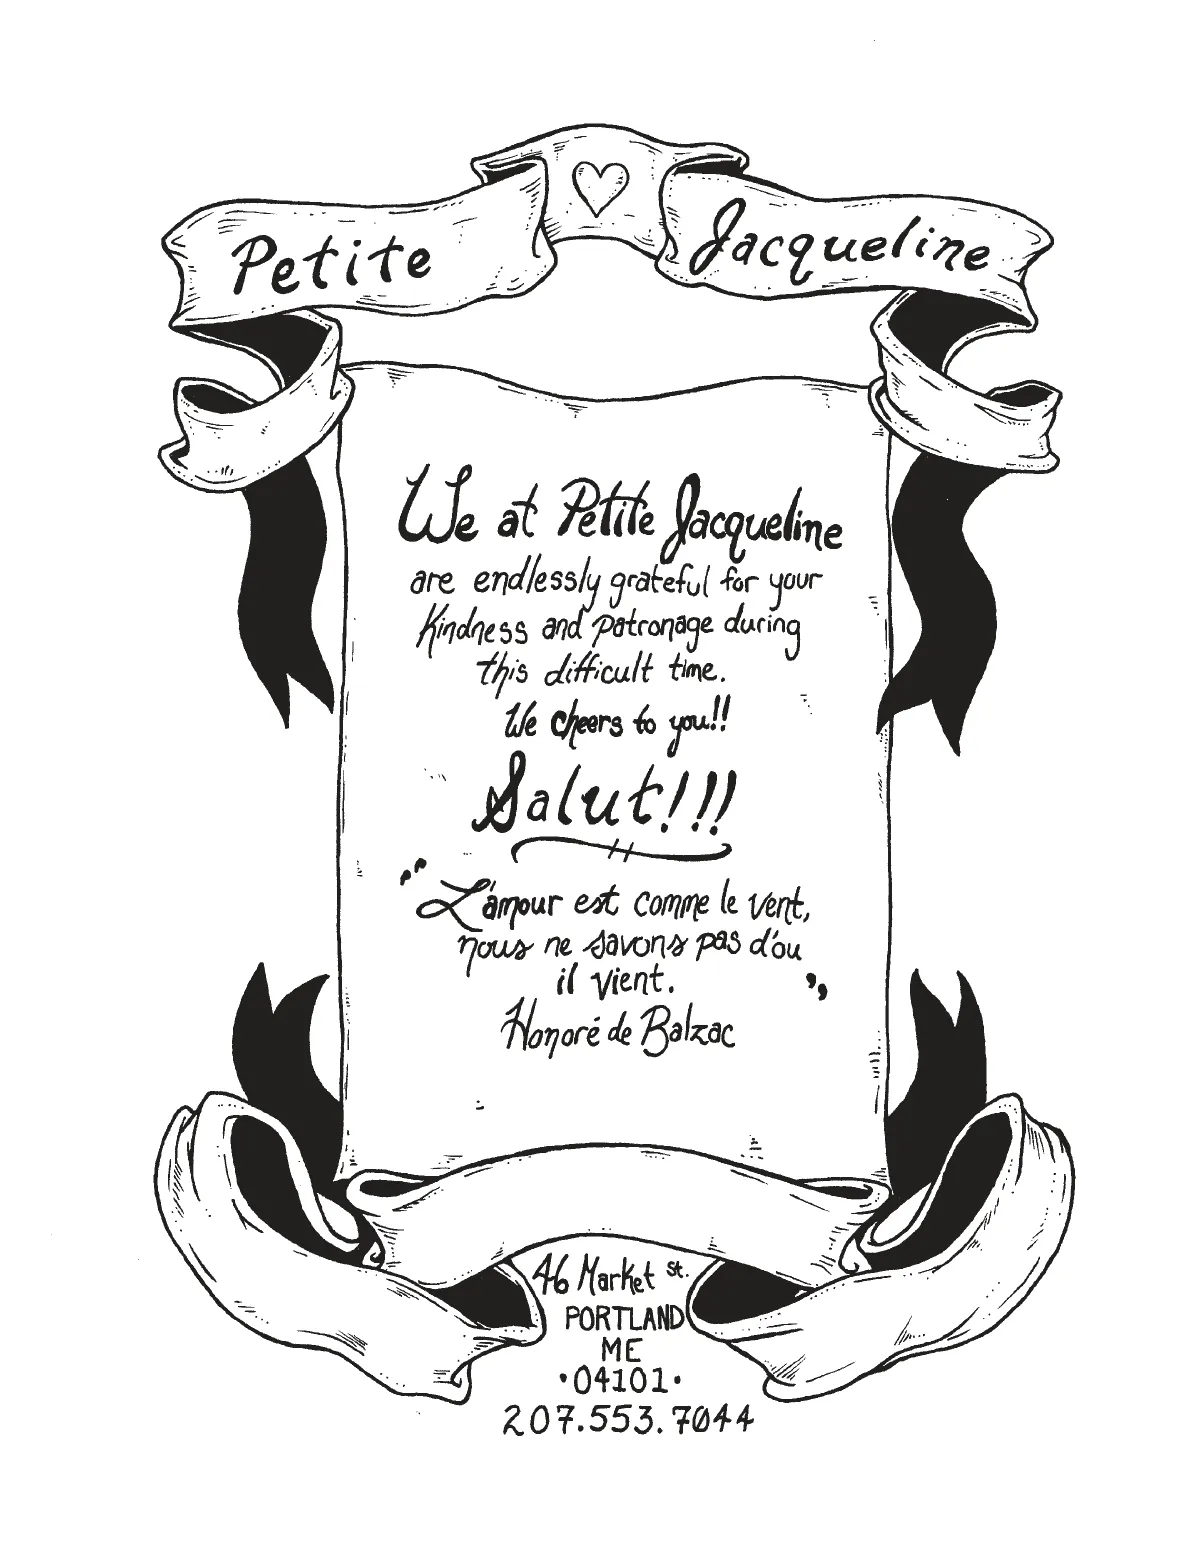 Petite Jacqueline
We at Petite Jacqueline
are endlessly grateful for your
Kindness and patronage during
this difficult time.
We cheers to you!!
Salut!!!
"L'amour est comme le vent,
nous ne savons pas d'ou
il vient."
Honoré de Balzac
46 Market St.
PORTLAND
ME
·04101·
207.553.7044